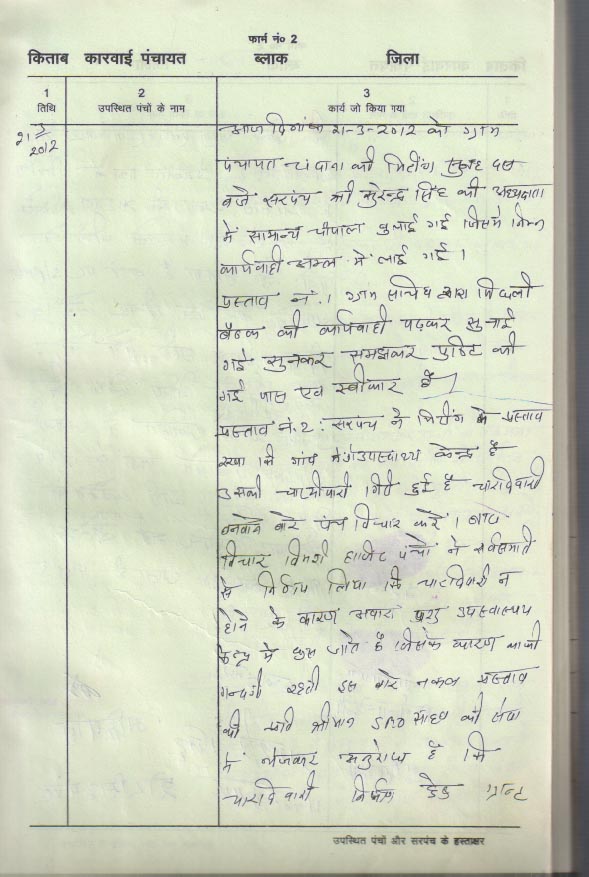 फार्म नं० 2
किताब कारवाई पंचायत ब्लाक जिला
1 2 3
तिथि उपस्थित पंचों के नाम कार्य जो किया गया
21/3/2012
आज दिनांक 21-3-2012 को ग्राम
पंचायत की मिटींग सुबह दस
बजे सरपंच श्री सुरेन्द्र सिंह की अध्यक्षता
में सामान्य चौपाल बुलाई गई जिसमें निम्न
कार्यवाही अमल में लाई गई।
प्रस्ताव नं. 1 ग्राम सचिव द्वारा पिछली
बैठक की कार्यवाही पढ़कर सुनाई
गई सुनकर समझकर पुष्टि की
गई पास एवं स्वीकार है
प्रस्ताव नं. 2: सरपंच ने मिटींग में प्रस्ताव
रखा कि गांव में उपस्वास्थ्य केन्द्र है
उसकी चारदीवारी गिरी हुई है चारदिवारी
बनवाने बारे पंच विचार करें। बाद
विचार विमर्श हाजिर पंचों ने सर्वसम्मति
से निर्णय लिया कि चारदिवारी न
होने के कारण अवारा पशु उपस्वास्थ्य
केन्द्र में घुस जाते है जिसके कारण काफी
गन्दगी रहती इस बारे नकल प्रस्ताव
की प्रति श्रीमान साहब की सेवा
में भेजकर अनुरोध है कि
चारदिवारी निर्माण हेतु ग्रान्ट
उपस्थित पंचों और सरपंच के हस्ताक्षर